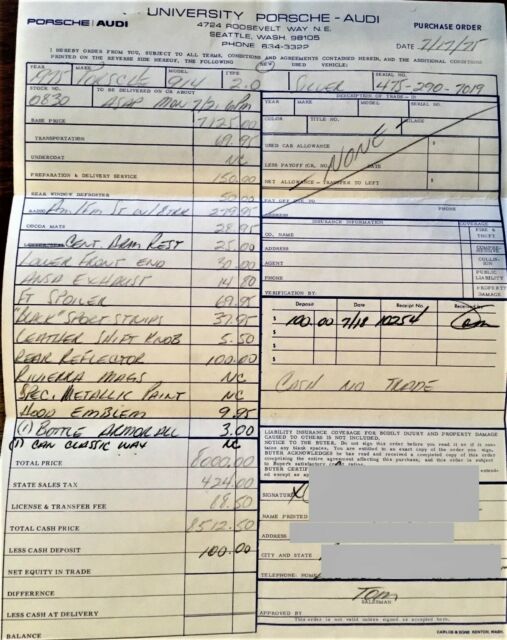 PORSCHE AUDI
UNIVERSITY PORSCHE - AUDI
4724 ROOSEVELT WAY N.E.
SEATTLE, WASH. 98105
PHONE 634-3322
PURCHASE ORDER
DATE 7/17/75
I HEREBY ORDER FROM YOU, SUBJECT TO ALL TERMS, CONDITIONS AND AGREEMENTS CONTAINED HEREIN, AND THE ADDITIONAL CONDITIONS
PRINTED ON THE REVERSE SIDE HEREOF, THE FOLLOWING NEW USED VEHICLE:
YEAR 1975 MAKE PORSCHE MODEL 914 TYPE 2.0 SILVER SERIAL NO. 475-290-7019
STOCK NO. 0830 TO BE DELIVERED ON OR ABOUT ASAP MON 7/21 6PM
DESCRIPTION OF TRADE-IN
YEAR MAKE MODEL SERIAL NO.
COLOR TITLE NO. MILEAGE
USED CAR ALLOWANCE $
LESS PAYOFF DATE $
NET ALLOWANCE - TRANSFER TO LEFT $
NONE
PHONE
ADDRESS
INSURANCE INFORMATION COVERAGE
CO. NAME FIRE & THEFT
ADDRESS
AGENT COLLISION
PHONE PUBLIC LIABILITY
VERIFICATION BY: PROPERTY DAMAGE
BASE PRICE 7125.00
TRANSPORTATION 69.95
UNDERCOAT NC
PREPARATION & DELIVERY SERVICE 150.00
REAR WINDOW DEFROSTER 50.00
RADIO AM/FM ST w/8TRK 279.95
COCOA MATS 28.95
CENT. ARM REST 25.00
LOWER FRONT END 30.00
ANSA EXHAUST
FT SPOILER 69.95
"BLACK" SPORT STRIPS 37.95
LEATHER SHIFT KNOB 5.50
REAR REFLECTOR 100.00
RIVIERRA MAGS NC
SPEC. METALLIC PAINT NC
HOOD EMBLEM 9.95
(1) BOTTLE ARMORALL 3.00
(1) CAN CLASSIC WAX NC
Deposit Date Receipt No.
$ 100.00 7/18 10254
$
$
$
CASH NO TRADE
TOTAL PRICE
STATE SALES TAX 424.00
LICENSE & TRANSFER FEE 88.50
TOTAL CASH PRICE 8512.50
LESS CASH DEPOSIT 100.00
NET EQUITY IN TRADE
DIFFERENCE
LESS CASH AT DELIVERY
BALANCE
LIABILITY INSURANCE COVERAGE FOR BODILY INJURY AND PROPERTY DAMAGE
CAUSED TO OTHERS IS NOT INCLUDED.
NOTICE TO THE BUYER. Do not sign this order before you read it or if it contains
any blank spaces. You are entitled to an exact copy of the order you sign.
SIGNATURE X
NAME PRINTED
ADDRESS
CITY AND STATE
TELEPHONE: HOME
Tom
SALESMAN
APPROVED BY
This order is not valid unless signed or accepted here.